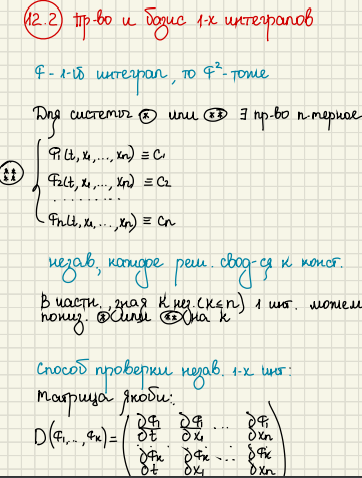 12.2 пр-во и базис 1-х интегралов
Φ - 1-ый интеграл, то Φ²-тоже
Для системы (*) или (**) ∃ пр-во n-мерное
Φ₁(t, x₁, ..., xₙ) ≡ C₁
(****) Φ₂(t, x₁, ..., xₙ) ≡ C₂
. . . . . . . . .
Φₙ(t, x₁, ..., xₙ) ≡ Cₙ
незав, каждое реш. свод-ся к конст.
В частн., зная k нез. (k≤n) 1 инт. можем
пониз. (*) (или (**)) на k
Способ проверки незав. 1-х инт:
Матрица Якоби:
D(Φ₁, .., Φₖ) = ( ∂Φ₁/∂t ∂Φ₁/∂x₁ ... ∂Φ₁/∂xₙ
. . . . . . . . .
∂Φₖ/∂t ∂Φₖ/∂x₁ ... ∂Φₖ/∂xₙ )